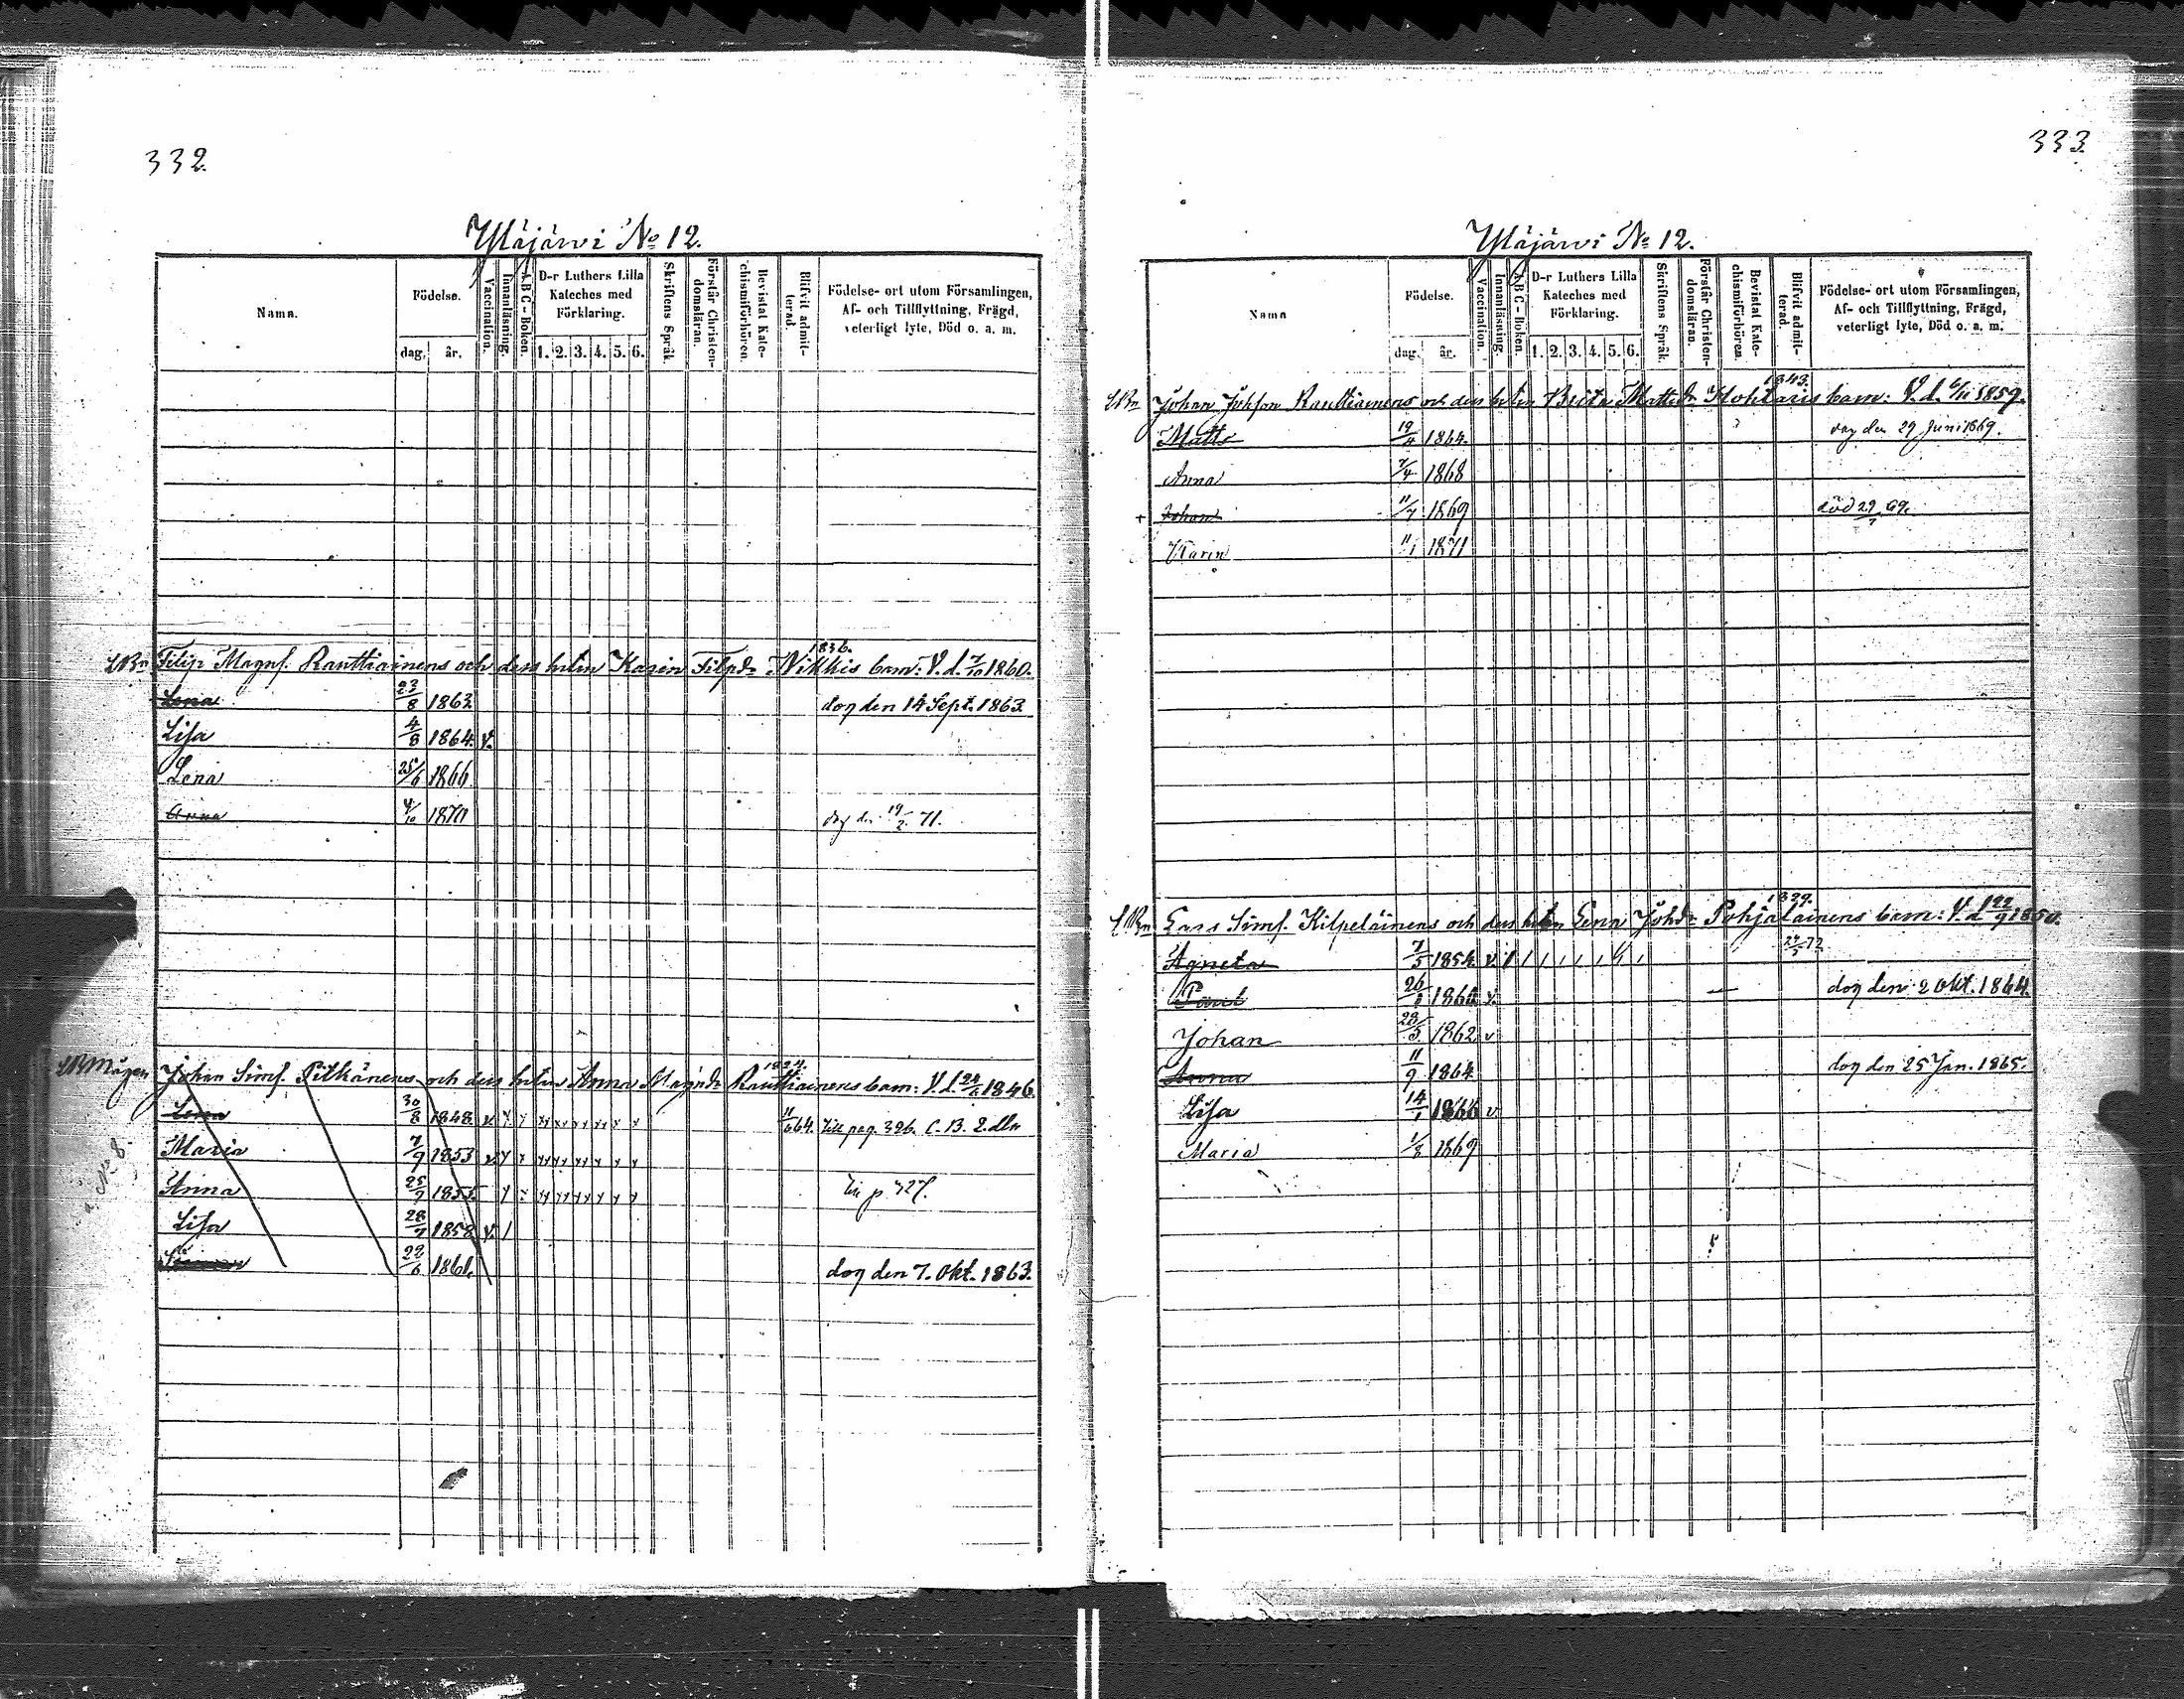 332.
Yläjärvi No 12.
Namn.
Födelse.
dag.
år.
Vaccination.
Innanläsning.
A B C - Boken.
D-r Luthers Lilla
Kateches med
Förklaring.
1. 2. 3. 4. 5. 6.
Skriftens Språk.
Förstår Christen-
domsläran.
Bevistat Kate-
chismiförhören.
Blifvit admit-
terad.
Födelse- ort utom Församlingen,
Af- och Tillflyttning, Frägd,
veterligt lyte, Död o. a. m.
1836.
Filip Magns. Rauttiainens och dess hstin Karin Filipdr Nikkis barn: V. d. 7/10 1860.
Lena 23/8 1863 dog den 14 Sept. 1863.
Lisa 4/8 1864. v.
Lena 25/6 1866
Anna 4/10 1870 dog den 19/2 71.
1824.
Johan Sims. Pitkänens och dess hstin Anna Magndr Rauttiainens barn: V. d. 24/6 1846.
Lena 30/8 1848. v 11/6 64. Till pag. 326. C. B. 2. dln
Maria 7/9 1853 v.
No 8.
Anna 25/7 1855. p 327.
Lisa 28/7 1858 v.
Simon 22/6 1861. dog den 7. Okt. 1863.
333.
Yläjärvi No 12.
Namn
Födelse.
dag.
år.
Vaccination.
Innanläsning.
A B C - Boken.
D-r Luthers Lilla
Kateches med
Förklaring.
1. 2. 3. 4. 5. 6.
Skriftens Språk.
Förstår Christen-
domsläran.
Bevistat Kate-
chismiförhören.
Blifvit admit-
terad.
Födelse- ort utom Församlingen,
Af- och Tillflyttning, Frägd,
veterligt lyte, Död o. a. m.
1843.
Johan Johsson Rauttiainens och dess hstin Brita Mattsdr barn: V. d. 6/11 1859.
Matts 19/4 1864. dog den 29 Juni 1869.
Anna 7/4 1868
+ Johan 11/7 1869 död 29/7 69.
Karin 11/1 1871
1829.
Lars Sims. Kilpeläinens och dess hstin Lena Johdr Pohjalainens barn: V. d. 22/9 1850.
Agneta 7/5 1854 v. 24/5 72
Paul 26/1 1860 v. dog den 2 Okt. 1864.
Johan 28/5 1862 v
Anna 11/9 1864 dog den 25 Jan. 1865.
Lisa 14/1 1866 v
Maria 1/8 1869